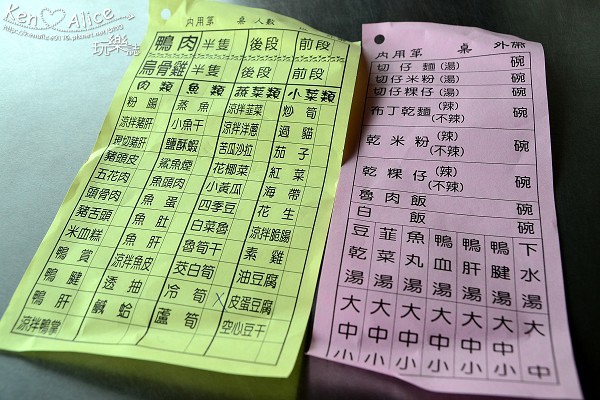 Ken♡Alice
玩樂誌
內用第 桌 人數
鴨肉 半隻 後段 前段
烏骨雞 半隻 後段 前段
肉類 魚類 蔬菜類 小菜類
粉腸 蒸魚 涼拌韮菜 炒筍
涼拌豬肝 小魚干 涼拌洋蔥 過貓
現切豬肝 鹽酥蝦 苦瓜沙拉 茄子
豬頭皮 鯊魚煙 花椰菜 紅菜
五花肉 魚頭肉 小黃瓜 海帶
頭骨肉 魚蛋 四季豆 花生
豬舌頭 魚肚 白菜魯 涼拌脆腸
米血糕 魚肝 魯筍干 素雞
鴨賞 涼拌魚皮 茭白筍 油豆腐
鴨腱 透抽 冷筍 x 皮蛋豆腐
鴨肝 鹹蛤 蘆筍 空心豆干
涼拌鴨掌
內用第 桌 外帶
切仔麵(湯) 碗
切仔米粉(湯) 碗
切仔粿仔(湯) 碗
布丁乾麵 (辣) (不辣) 碗
乾米粉 (辣) (不辣) 碗
乾粿仔 (辣) (不辣) 碗
魯肉飯 碗
白飯 碗
豆乾湯 韮菜湯 魚丸湯 鴨血湯 鴨肝湯 鴨腱湯 下水湯
大 大 大 大 大 大 大
中 中 中 中 中 中 中
小 小 小 小 小 小 小